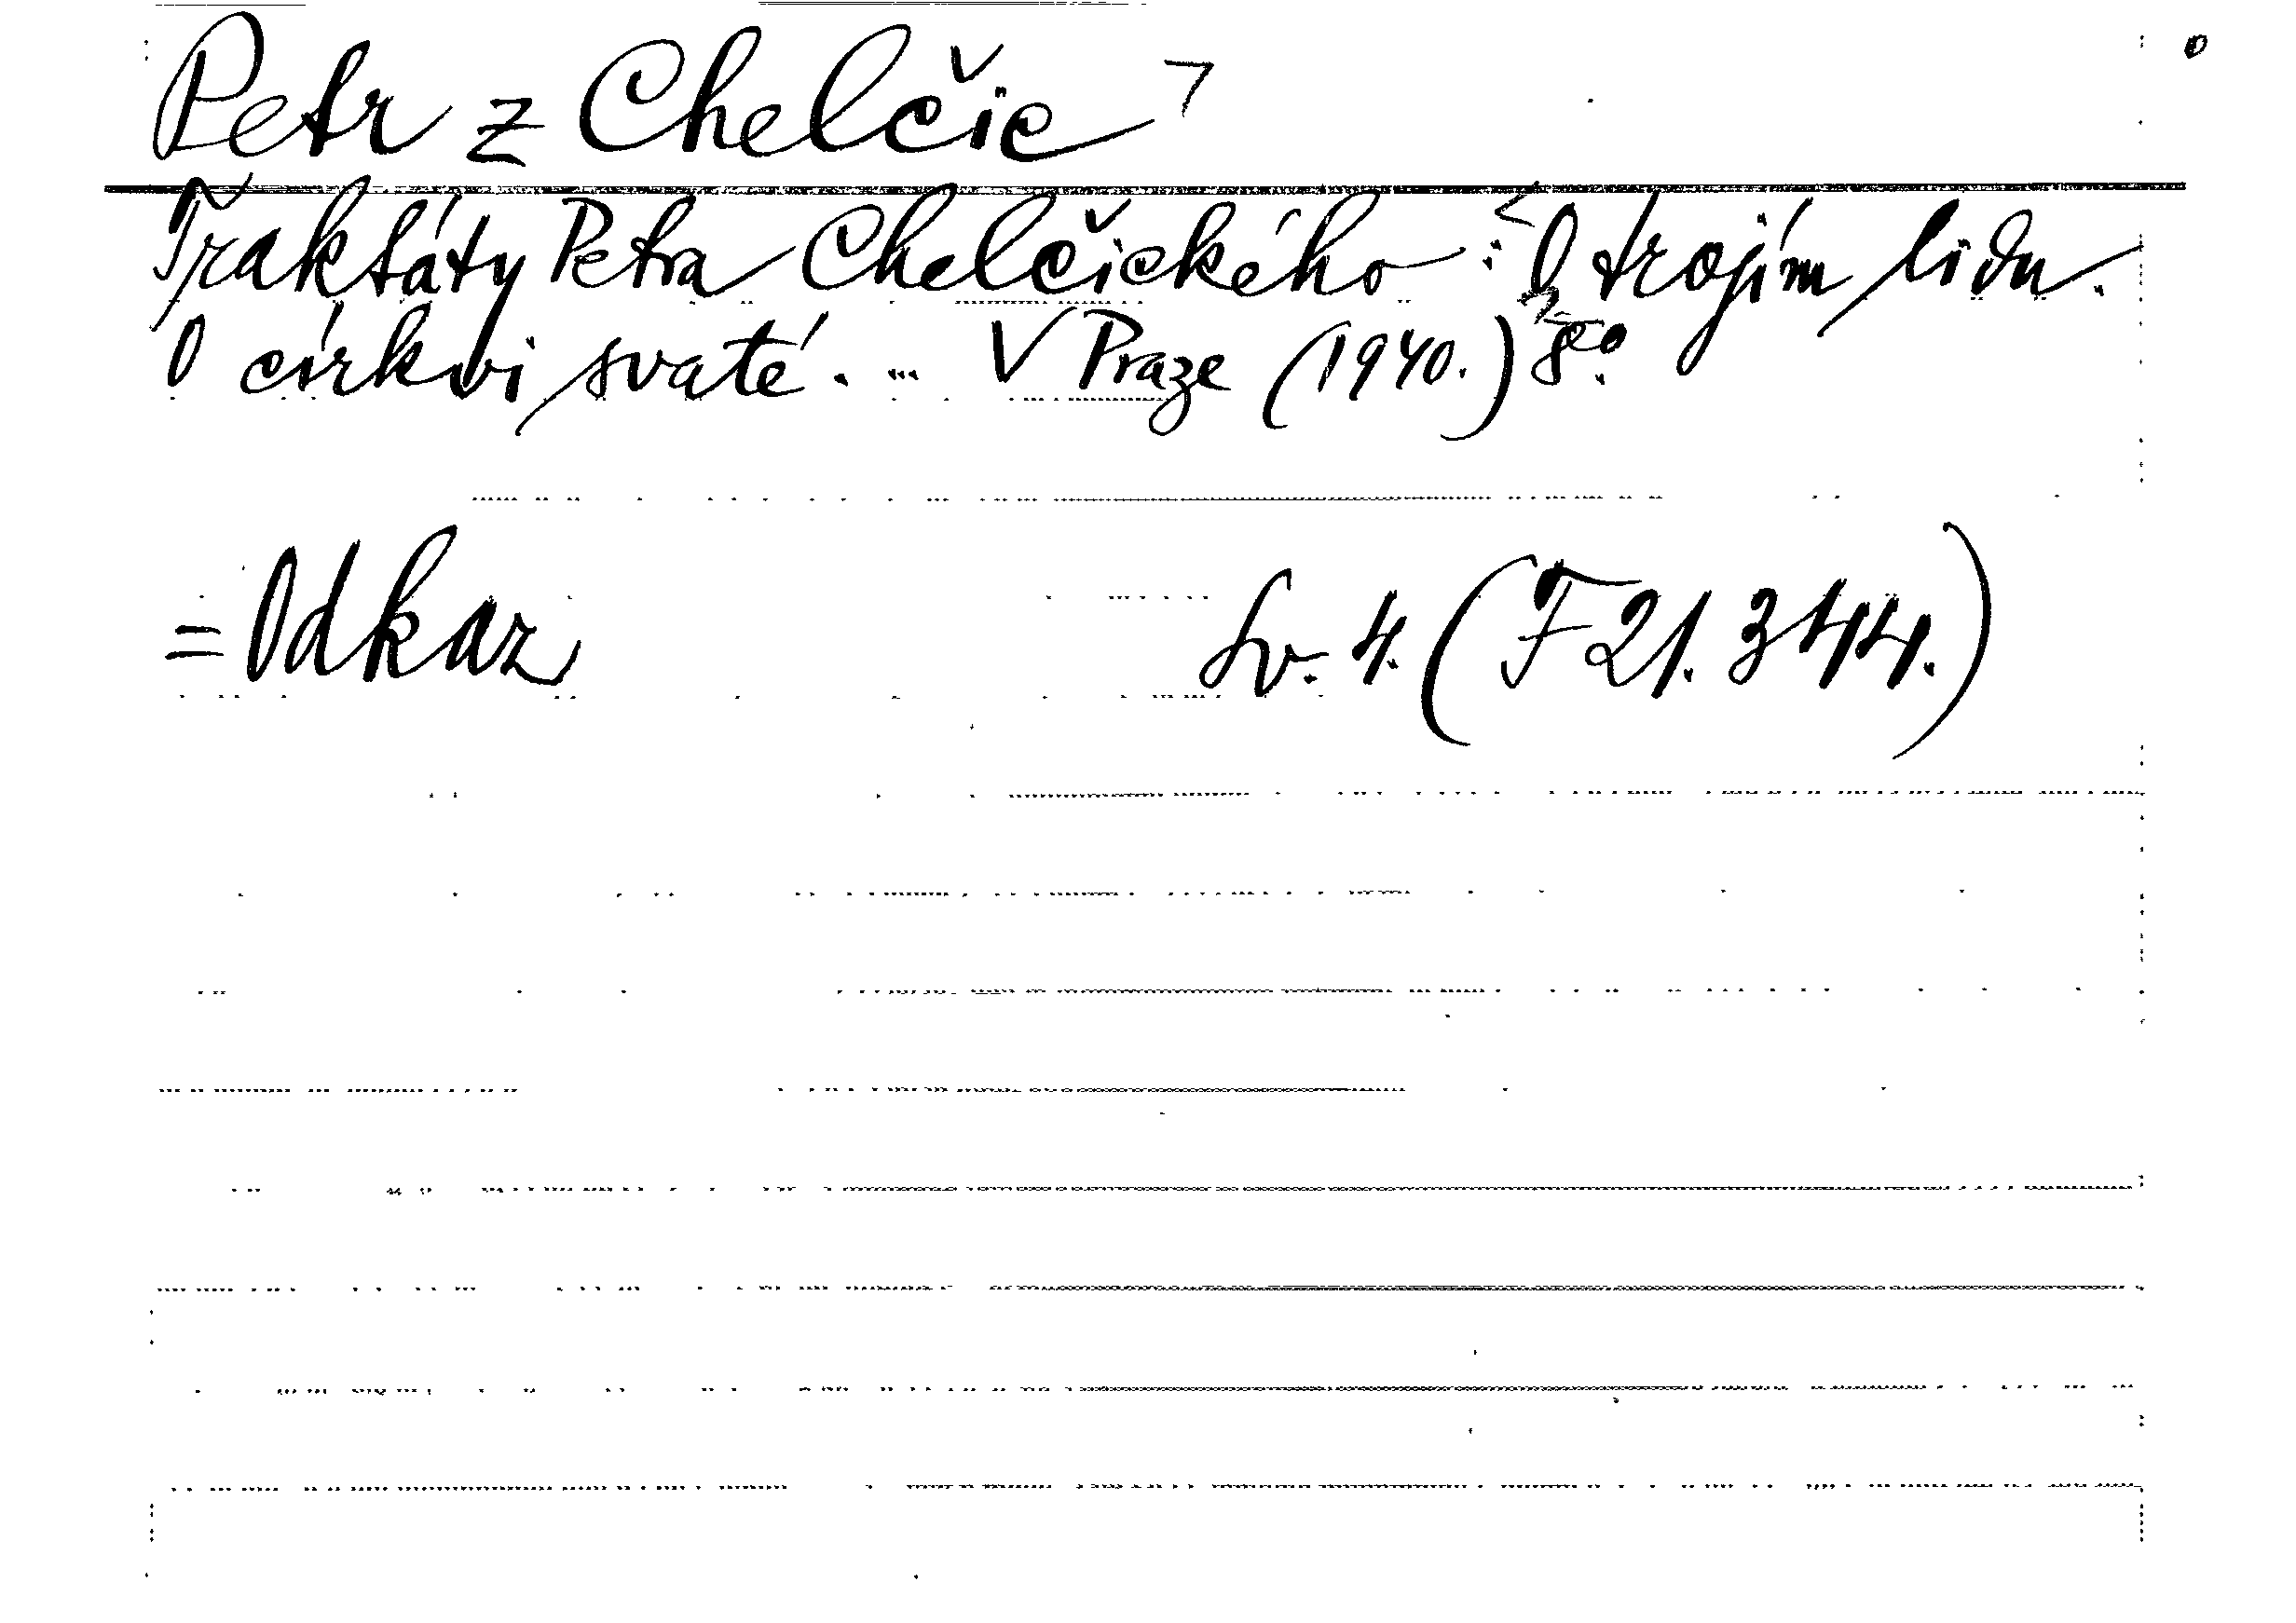 Petr z Chelčic
Traktáty Petra Chelčického: O trojím lidu.
O církvi svaté. ... V Praze (1940.) 8°.
= Odkaz Sv. 4. (F 21.344.)